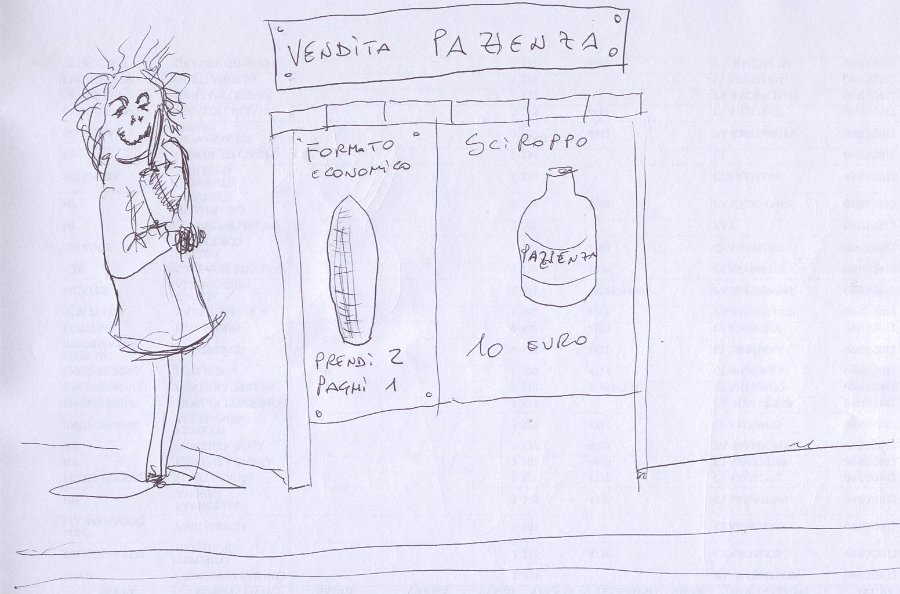 VENDITA PAZIENZA
FORMATO
ECONOMICO
PRENDI 2
PAGHI 1
SCIROPPO
PAZIENZA
10 EURO